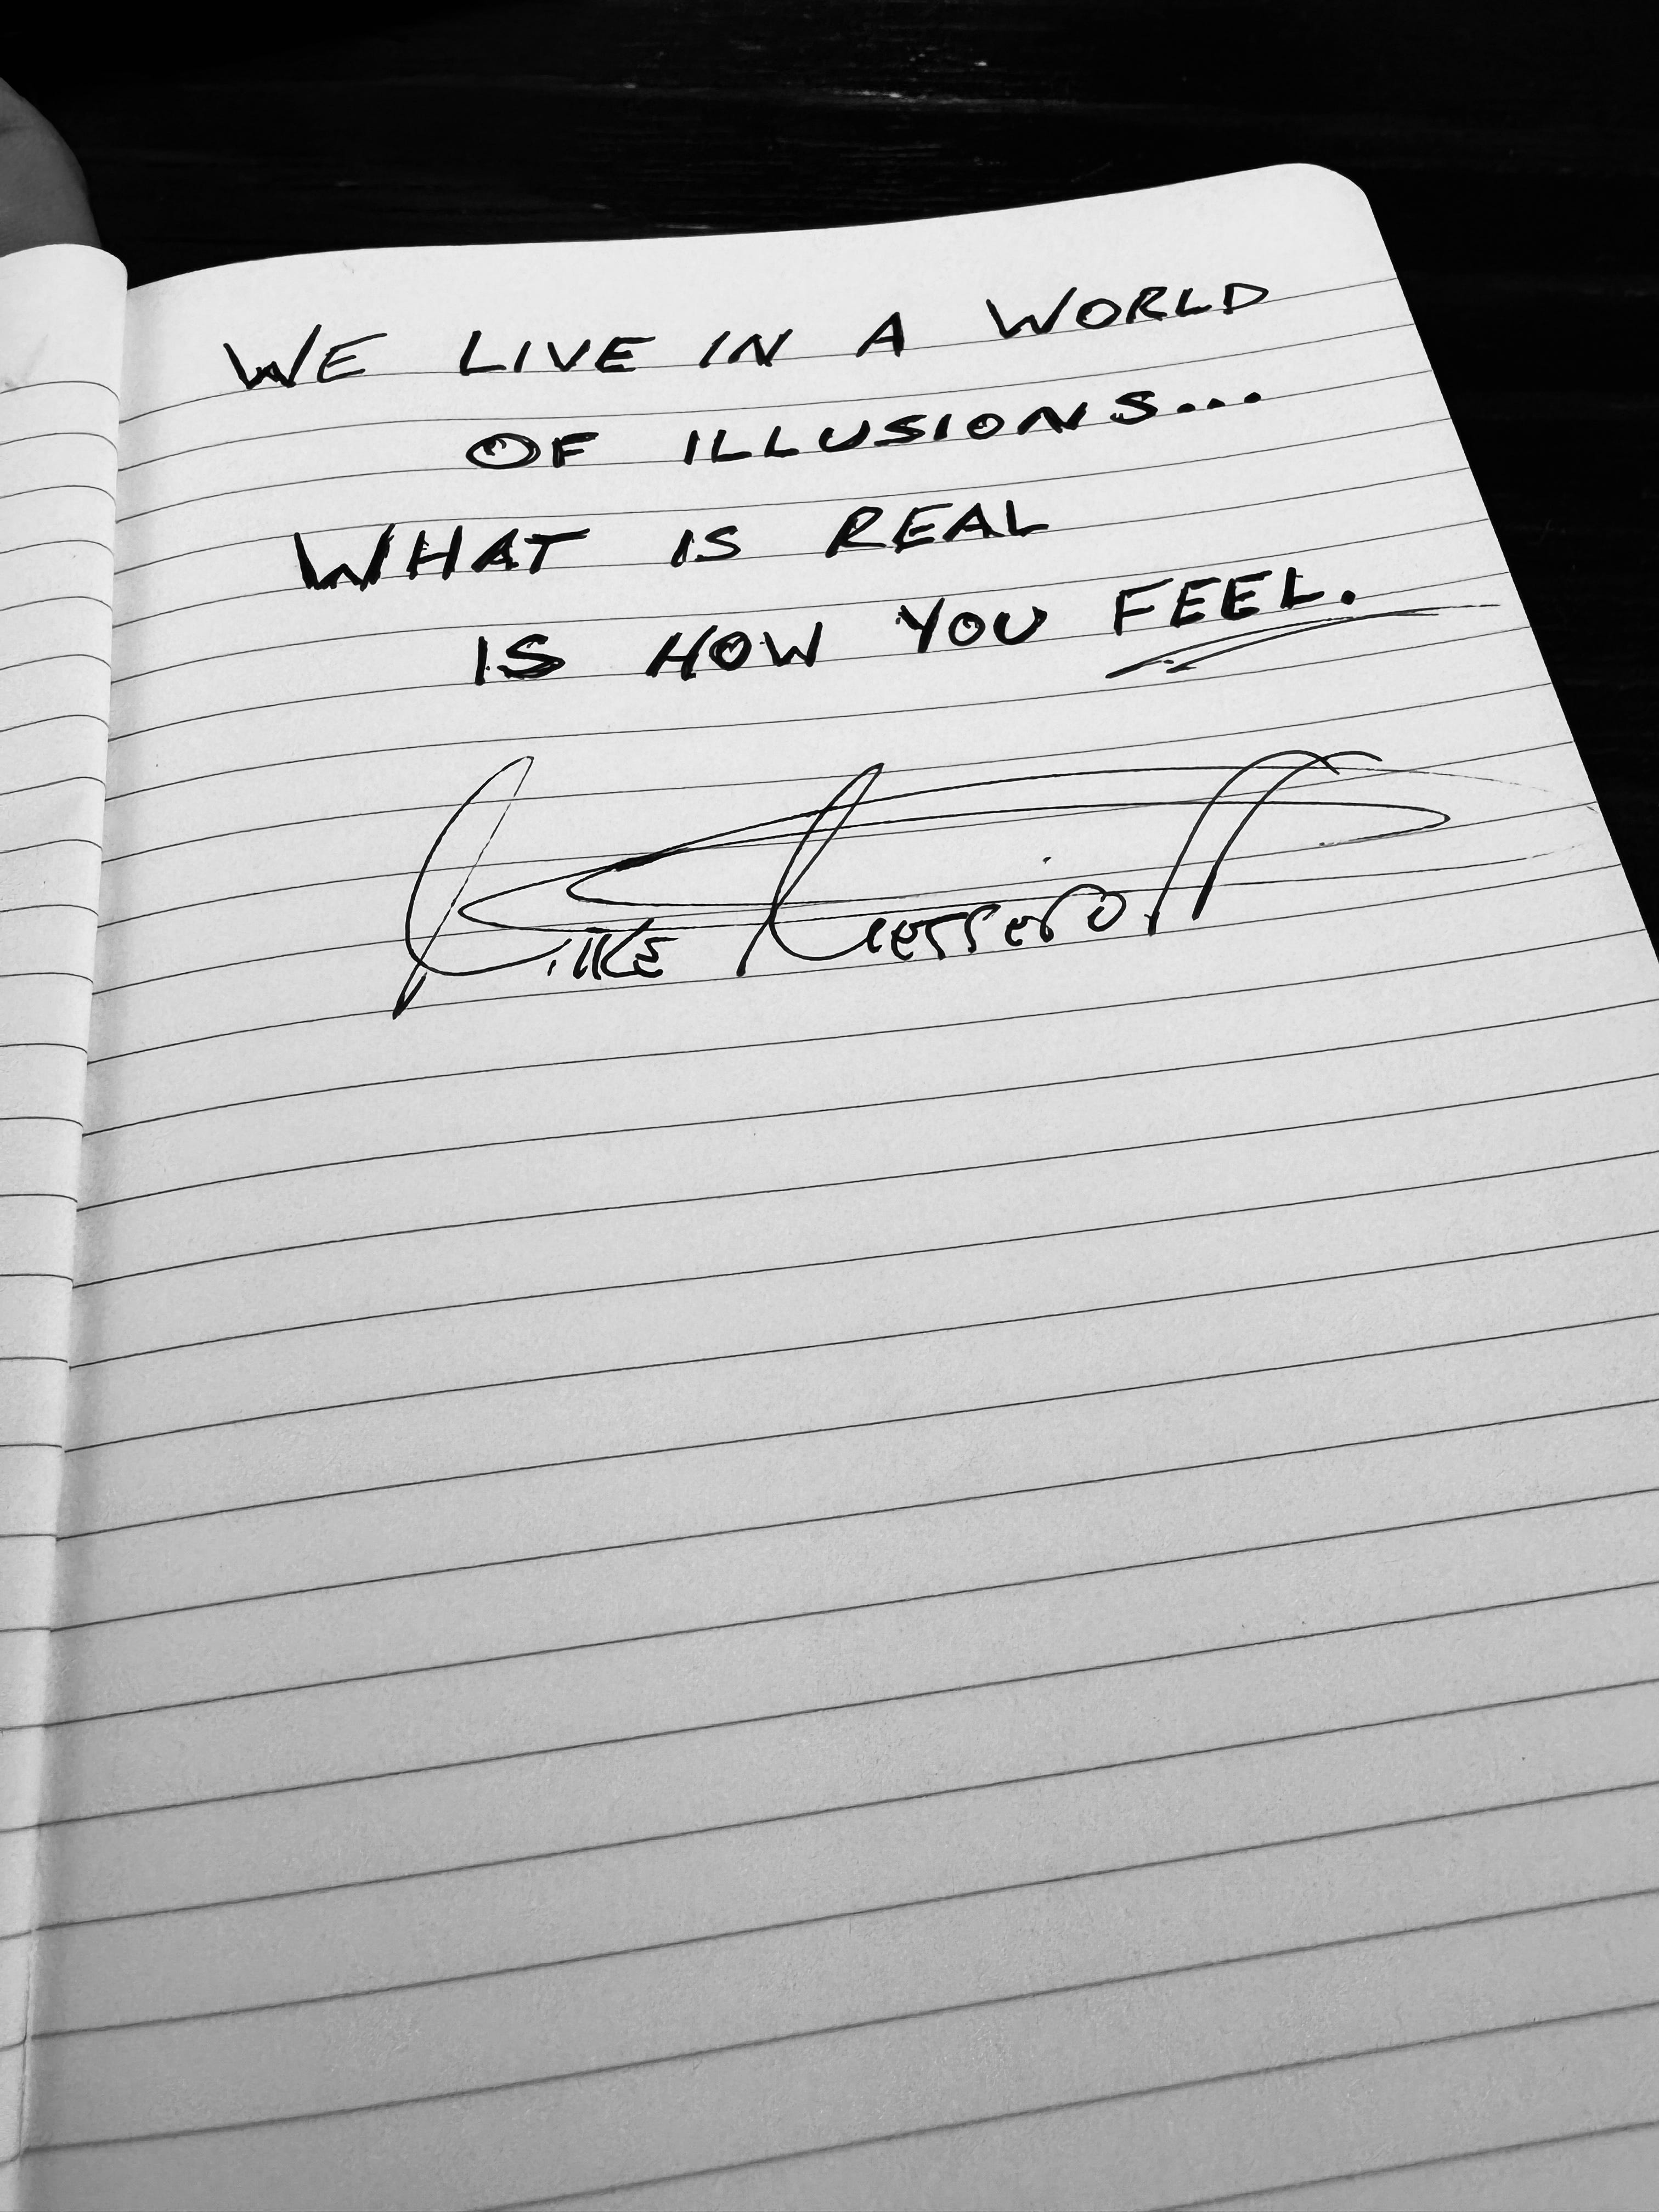 WE LIVE IN A WORLD
OF ILLUSIONS...
WHAT IS REAL
IS HOW YOU FEEL.